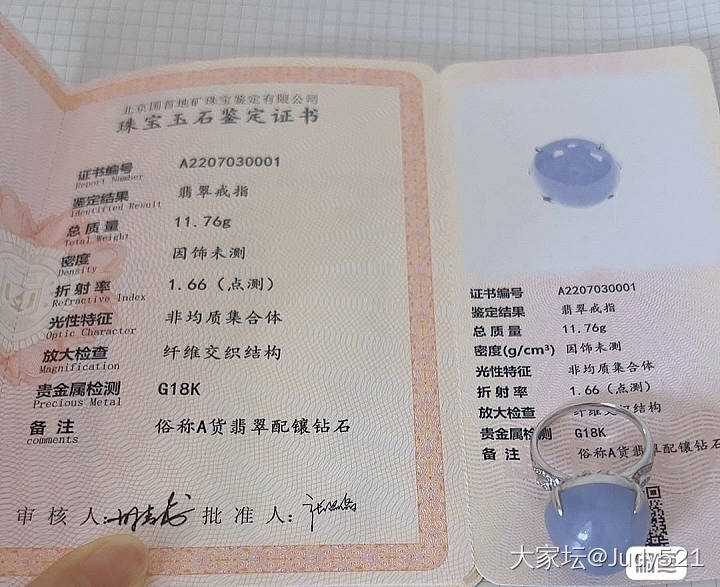 北京国首地矿珠宝鉴定有限公司
珠宝玉石鉴定证书
证书编号 A2207030001
Report Number
鉴定结果 翡翠戒指
Identified Result
总质量 11.76g
Total Weight
密度 因饰未测
Density
折射率 1.66（点测）
Refractive Index
光性特征 非均质集合体
Optic Character
放大检查 纤维交织结构
Magnification
贵金属检测 G18K
Precious Metal
备注 俗称A货翡翠配镶钻石
comments
审核人: 批准人:
证书编号 A2207030001
鉴定结果 翡翠戒指
总质量 11.76g
密度(g/cm³) 因饰未测
光性特征 非均质集合体
折射率 1.66（点测）
放大检查 纤维交织结构
贵金属检测 G18K
备注 俗称A货翡翠配镶钻石
大家坛@Judy521